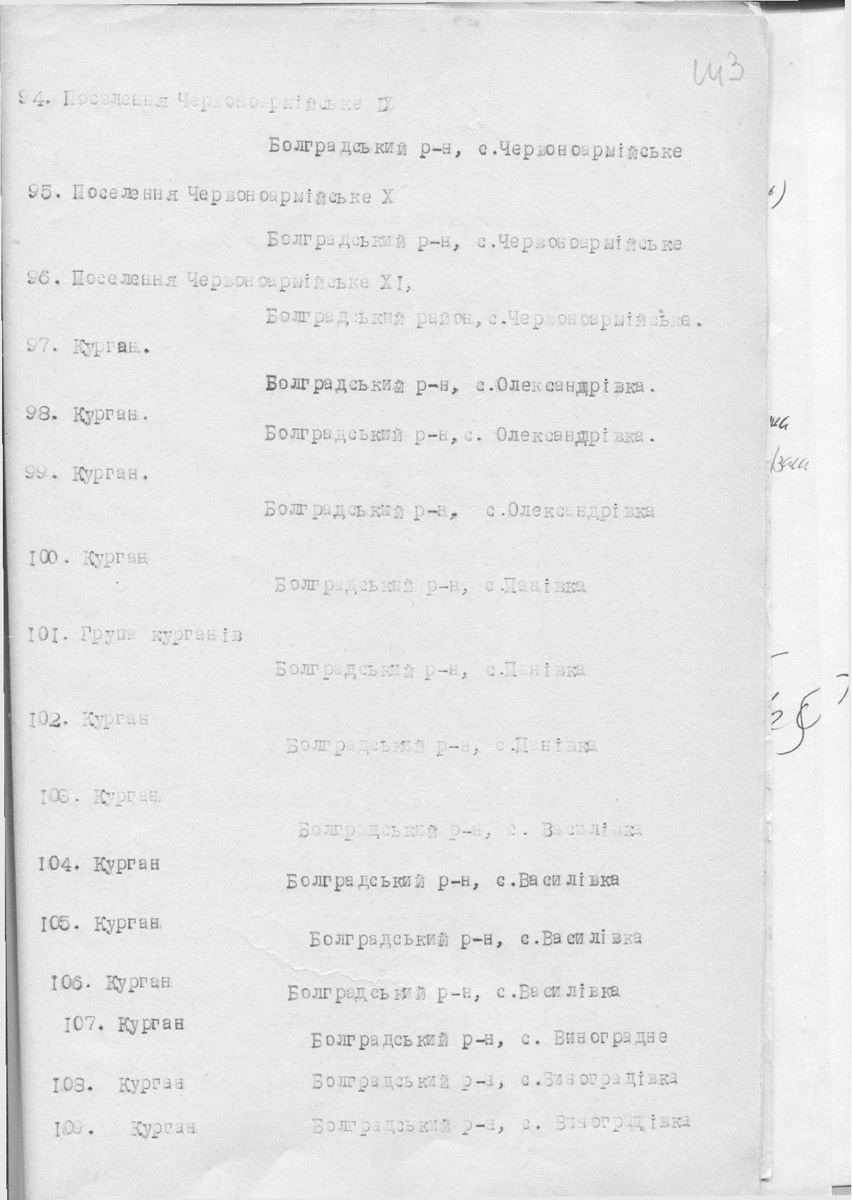 94. Поселення Червоноармійське IX
Болградський р-н, с.Червоноармійське
95. Поселення Червоноармійське X
Болградський р-н, с.Червоноармійське
96. Поселення Червоноармійське XI,
Болградський район,с.Червоноармійське.
97. Курган.
Болградський р-н, с.Олександрівка.
98. Курган.
Болградський р-н,с. Олександрівка.
99. Курган.
Болградський р-н, с.Олександрівка
100. Курган
Болградський р-н, с.Панівка
101. Група курганів
Болградський р-н, с.Панівка
102. Курган
Болградський р-н, с.Панівка
103. Курган
Болградський р-н, с. Василівка
104. Курган
Болградський р-н, с.Василівка
105. Курган
Болградський р-н, с.Василівка
106. Курган
Болградський р-н, с.Василівка
107. Курган
Болградський р-н, с. Виноградне
108. Курган
Болградський р-н, с.Виноградівка
109. Курган
Болградський р-н, с. Виноградівка